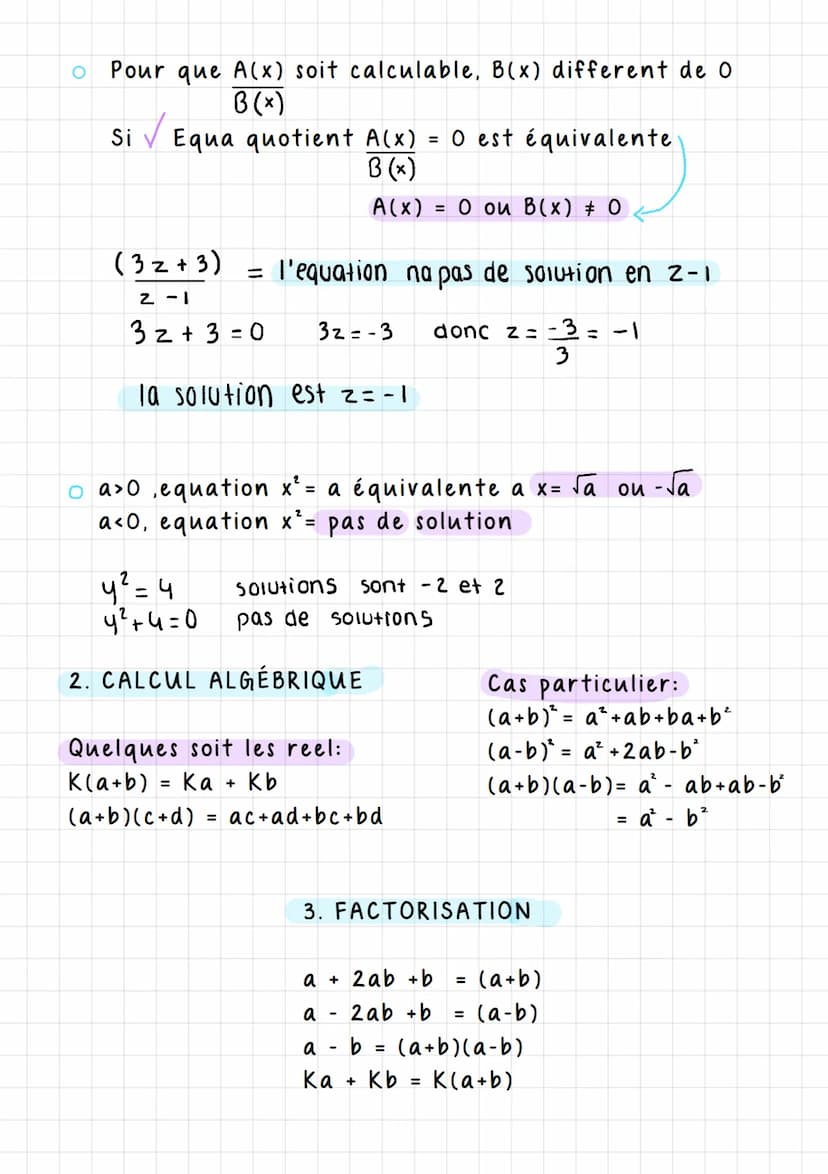 ○ Pour que A(x)/B(x) soit calculable, B(x) different de 0
Si √ Equa quotient A(x)/B(x) = 0 est équivalente
A(x) = 0 ou B(x) ≠ 0
(3z+3)/z-1 = l'equation na pas de solution en z-1
3z + 3 = 0 3z = -3 donc z = -3/3 = -1
la solution est z = -1
○ a>0 ,equation x² = a équivalente a x= √a ou -√a
a<0, equation x²= pas de solution
y² = 4 solutions sont -2 et 2
y²+4=0 pas de solutions
2. CALCUL ALGÉBRIQUE
Quelques soit les reel:
K(a+b) = Ka + Kb
(a+b)(c+d) = ac+ad+bc+bd
Cas particulier:
(a+b)² = a²+ab+ba+b²
(a-b)² = a²+2ab-b²
(a+b)(a-b)= a² - ab+ab-b²
= a² - b²
3. FACTORISATION
a + 2ab +b = (a+b)
a - 2ab +b = (a-b)
a - b = (a+b)(a-b)
Ka + Kb = K(a+b)